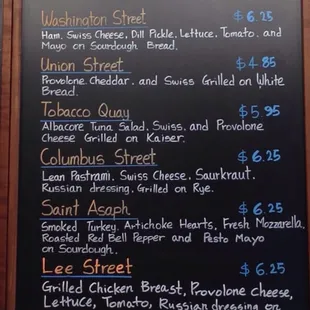 Washington Street $6.25
Ham, Swiss Cheese, Dill Pickle, Lettuce, Tomato, and
Mayo on Sourdough Bread.
Union Street $4.85
Provolone, Cheddar, and Swiss Grilled on White
Bread.
Tobacco Quay $5.95
Albacore Tuna Salad, Swiss, and Provolone
Cheese Grilled on Kaiser.
Columbus Street $6.25
Lean Pastrami, Swiss Cheese, Saurkraut,
Russian dressing, Grilled on Rye.
Saint Asaph $6.25
Smoked Turkey, Artichoke Hearts, Fresh Mozzarella,
Roasted Red Bell Pepper and Pesto Mayo
on Sourdough.
Lee Street $6.25
Grilled Chicken Breast, Provolone Cheese,
Lettuce, Tomato, Russian dressing on